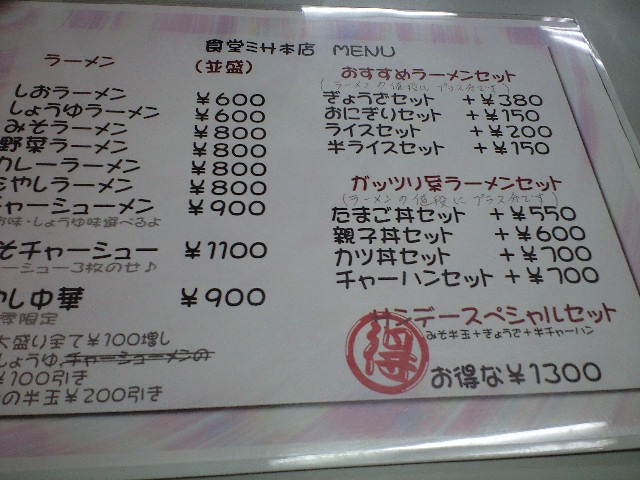 食堂ミサ本店 MENU
ラーメン (並盛)
しおラーメン ¥600
しょうゆラーメン ¥600
みそラーメン ¥800
野菜ラーメン ¥800
カレーラーメン ¥800
もやしラーメン ¥800
チャーシューメン ¥900
お味・しょうゆ味選べるよ
そチャーシュー ¥1100
ーシュー3枚のせ♪
やし中華 ¥900
季限定
大盛り全て¥100増し
しょうゆ,チャーシューメンの
¥100引き
の半玉¥200引き
おすすめラーメンセット
(ラーメンの値段にプラス分です)
ぎょうざセット +¥380
おにぎりセット +¥150
ライスセット +¥200
半ライスセット +¥150
ガッツリ系ラーメンセット
(ラーメンの値段にプラス分です)
たまご丼セット +¥550
親子丼セット +¥600
カツ丼セット +¥700
チャーハンセット +¥700
サンデースペシャルセット
みそ半玉+ぎょうざ+半チャーハン
得 お得な¥1300